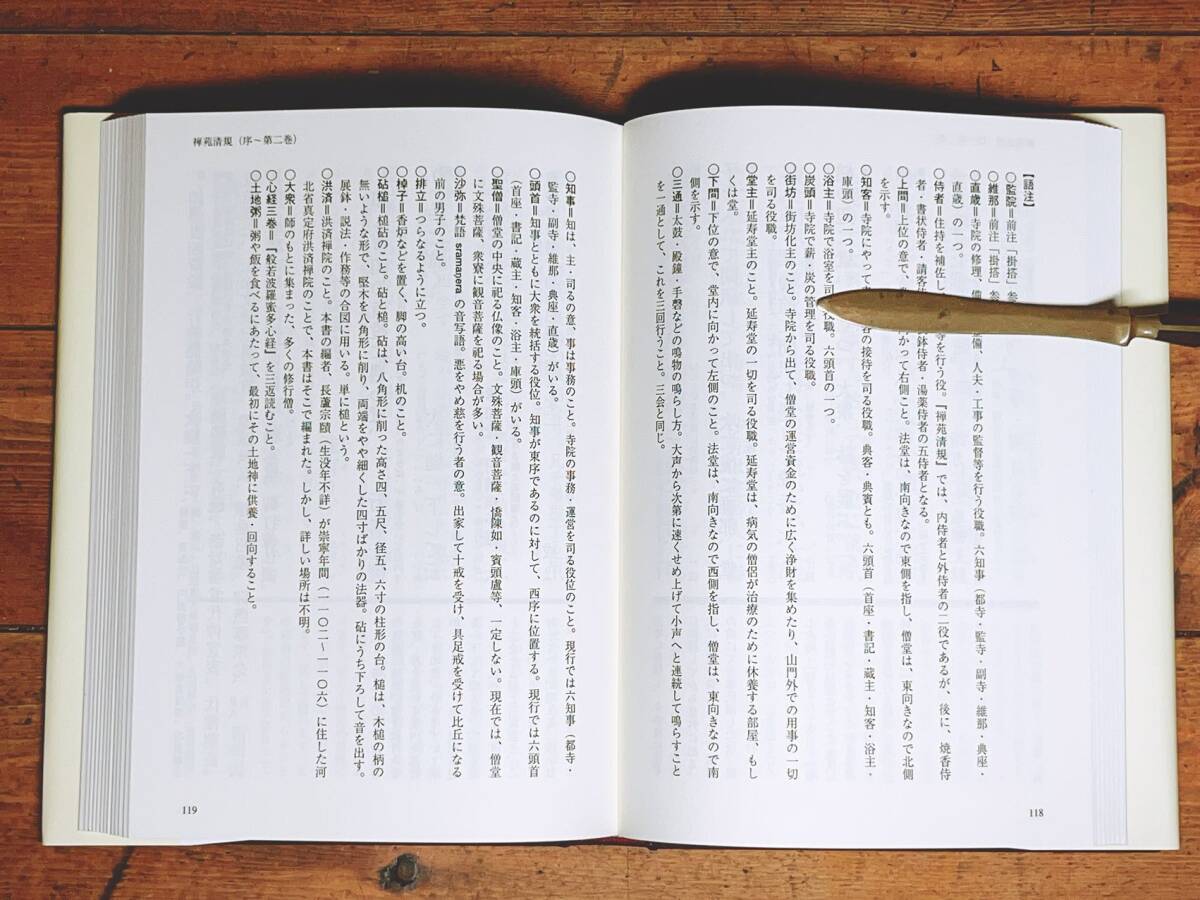 【語注】
○監院＝前注「掛搭」参
○維那＝前注「掛搭」参
○直歳＝寺院の修理、備、人夫・工事の監督等を行う役職。六知事（都寺・監寺・副寺・維那・典座・
直歳）の一つ。
○侍者＝住持を補佐し等を行う役。『禅苑清規』では、内侍者と外侍者の二役であるが、後に、焼香侍
者・書状侍者・請客鉢侍者・湯薬侍者の五侍者となる。
○上間＝上位の意で、かって右側こと。法堂は、南向きなので東側を指し、僧堂は、東向きなので北側
を示す。
○知客＝寺院にやって客の接待を司る役職。典客・典賓とも。六頭首（首座・書記・蔵主・知客・浴主・
庫頭）の一つ。
○浴主＝寺院で浴室を司役職。六頭首の一つ。
○炭頭＝寺院で薪・炭の管理を司る役職。
○街坊＝街坊化主のこと。寺院から出て、僧堂の運営資金のために広く浄財を集めたり、山門外での用事の一切
を司る役職。
○堂主＝延寿堂主のこと。延寿堂の一切を司る役職。延寿堂は、病気の僧侶が治療のために休養する部屋、もし
くは堂。
○下間＝下位の意で、堂内に向かって左側のこと。法堂は、南向きなので西側を指し、僧堂は、東向きなので南
側を示す。
○三通＝太鼓・殿鐘・手磬などの鳴物の鳴らし方。大声から次第に速くせめ上げて小声へと連続して鳴らすこと
を一通として、これを三回行うこと。三会と同じ。
118
禅苑清規（序～第二巻）
○知事＝知は、主・司るの意、事は事務のこと。寺院の事務・運営を司る役位のこと。現行では六知事（都寺・
監寺・副寺・維那・典座・直歳）がいる。
○頭首＝知事とともに大衆を統括する役位。知事が東序であるのに対して、西序に位置する。現行では六頭首
（首座・書記・蔵主・知客・浴主・庫頭）がいる。
○聖僧＝僧堂の中央に祀る仏像のこと。文殊菩薩・観音菩薩・憍陳如・賓頭盧等、一定しない。現在では、僧堂
に文殊菩薩、衆寮に観音菩薩を祀る場合が多い。
○沙弥＝梵語 śramaṇera の音写語。悪をやめ慈を行う者の意。出家して十戒を受け、具足戒を受けて比丘になる
前の男子のこと。
○排立＝つらなるように立つ。
○棹子＝香炉などを置く、脚の高い台。机のこと。
○砧槌＝槌砧のこと。砧と槌。砧は、八角形に削った高さ四、五尺、径五、六寸の柱形の台。槌は、木槌の柄の
無いような形で、堅木を八角形に削り、両端をやや細くした四寸ばかりの法器。砧にうち下ろして音を出す。
展鉢・説法・作務等の合図に用いる。単に槌という。
○洪済＝洪済禅院のこと。本書の編者、長蘆宗賾（生没年不詳）が崇寧年間（一一〇二～一一〇六）に住した河
北省真定府洪済禅院のことで、本書はそこで編まれた。しかし、詳しい場所は不明。
○大衆＝師のもとに集まった、多くの修行僧。
○心経三巻＝『般若波羅蜜多心経』を三返読むこと。
○土地粥＝粥や飯を食べるにあたって、最初にその土地神に供養・回向すること。
119